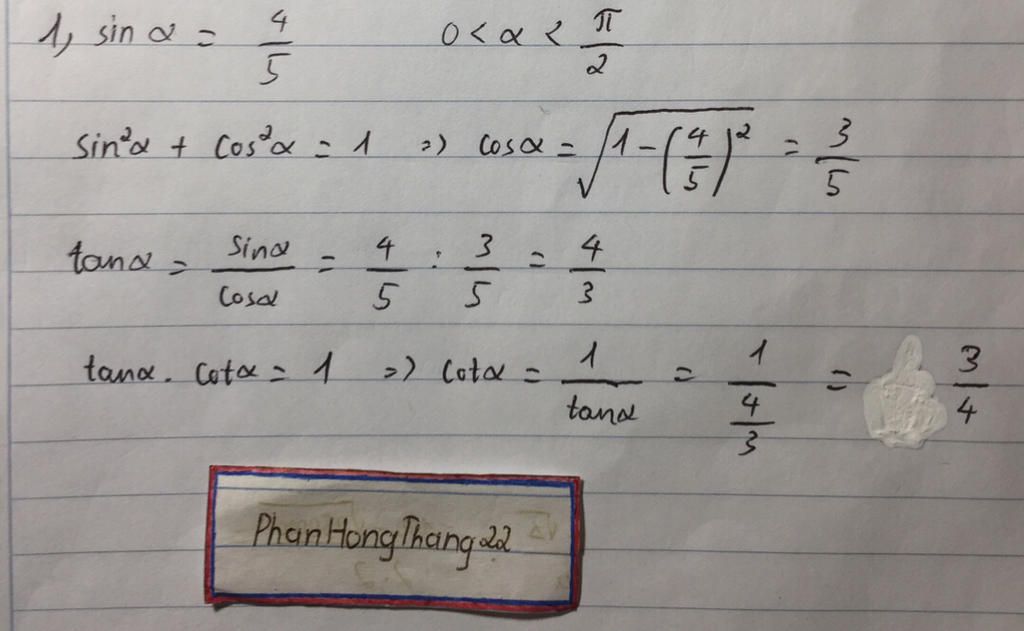 1, sin α = 4/5 0 < α < π/2
sin²α + cos²α = 1 => cosα = √(1 - (4/5)²) = 3/5
tanα = sinα/cosα = 4/5 : 3/5 = 4/3
tanα . cotα = 1 => cotα = 1/tanα = 1/(4/3) = 3/4
PhanHongThang22